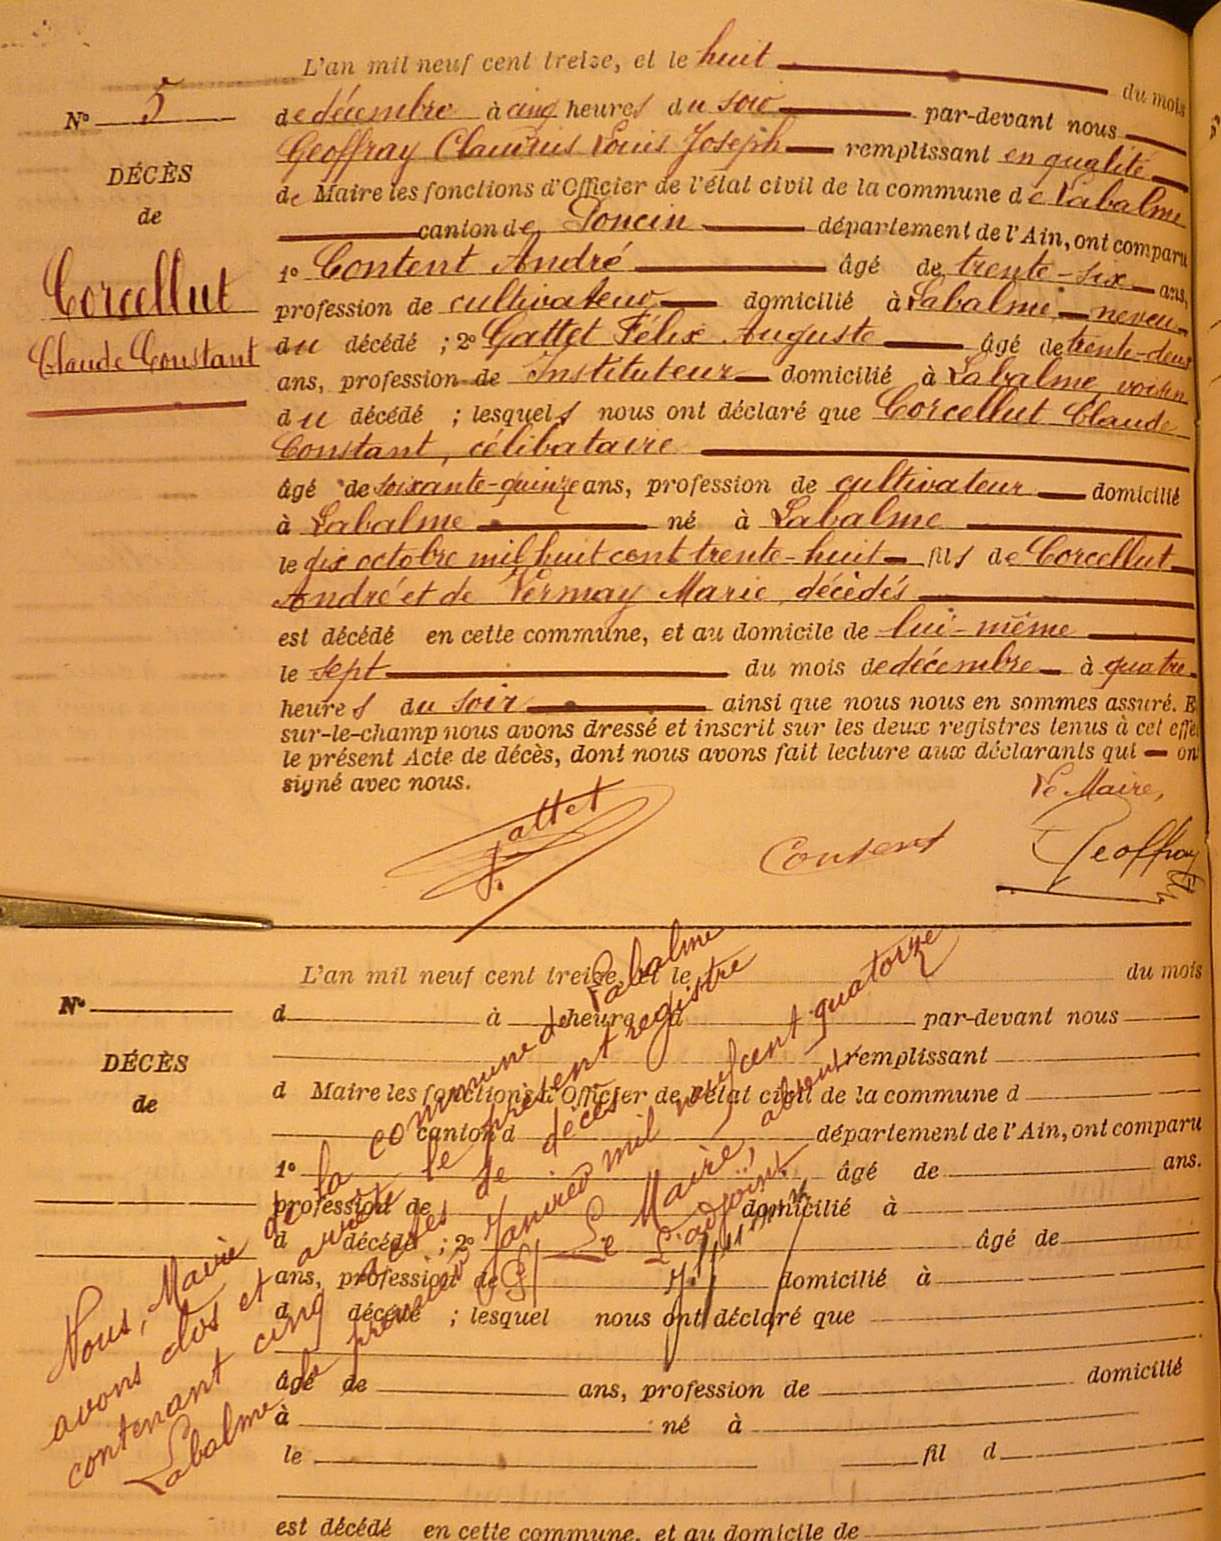 L'an mil neuf cent treize, et le huit du mois
N° 5
de décembre à cinq heures du soir par-devant nous
Geoffray Claudius Louis Joseph remplissant en qualité
DÉCÈS
de
de Maire les fonctions d'Officier de l'état civil de la commune de Labalme
canton de Poncin département de l'Ain, ont comparu
1° Content André âgé de trente-six ans,
Corcellut
Claude Constant
profession de cultivateur domicilié à Labalme, neveu
du décédé ; 2° Gattet Félix Auguste âgé de trente-deux
ans, profession de Instituteur domicilié à Labalme, voisin
du décédé ; lesquels nous ont déclaré que Corcellut Claude
Constant, célibataire
âgé de soixante-quinze ans, profession de cultivateur domicilié
à Labalme né à Labalme
le dix octobre mil huit cent trente-huit fils de Corcellut
André et de Vermay Marie, décédés
est décédé en cette commune, et au domicile de lui-même
le sept du mois de décembre à quatre
heures du soir ainsi que nous nous en sommes assuré. E
sur-le-champ nous avons dressé et inscrit sur les deux registres tenus à cet effe
le présent Acte de décès, dont nous avons fait lecture aux déclarants qui on
signé avec nous.
Le Maire,
Gattet
Content
Geoffray
L'an mil neuf cent treize, et le du mois
N°
d à heure d par-devant nous
remplissant
DÉCÈS
de
d Maire les fonctions d'Officier de l'état civil de la commune d
canton d département de l'Ain, ont comparu
1° âgé de ans.
profession de domicilié à
d décédé ; 2° âgé de
ans, profession de domicilié à
d décédé ; lesquel nous ont déclaré que
âgé de ans, profession de domicilié
à né à
le fil d
est décédé en cette commune, et au domicile de
Nous, Maire de la commune de Labalme
avons clos et arrêté le présent registre
contenant cinq actes de décès.
Labalme le premier Janvier mil neuf cent quatorze
Le Maire, absent
L'adjoint